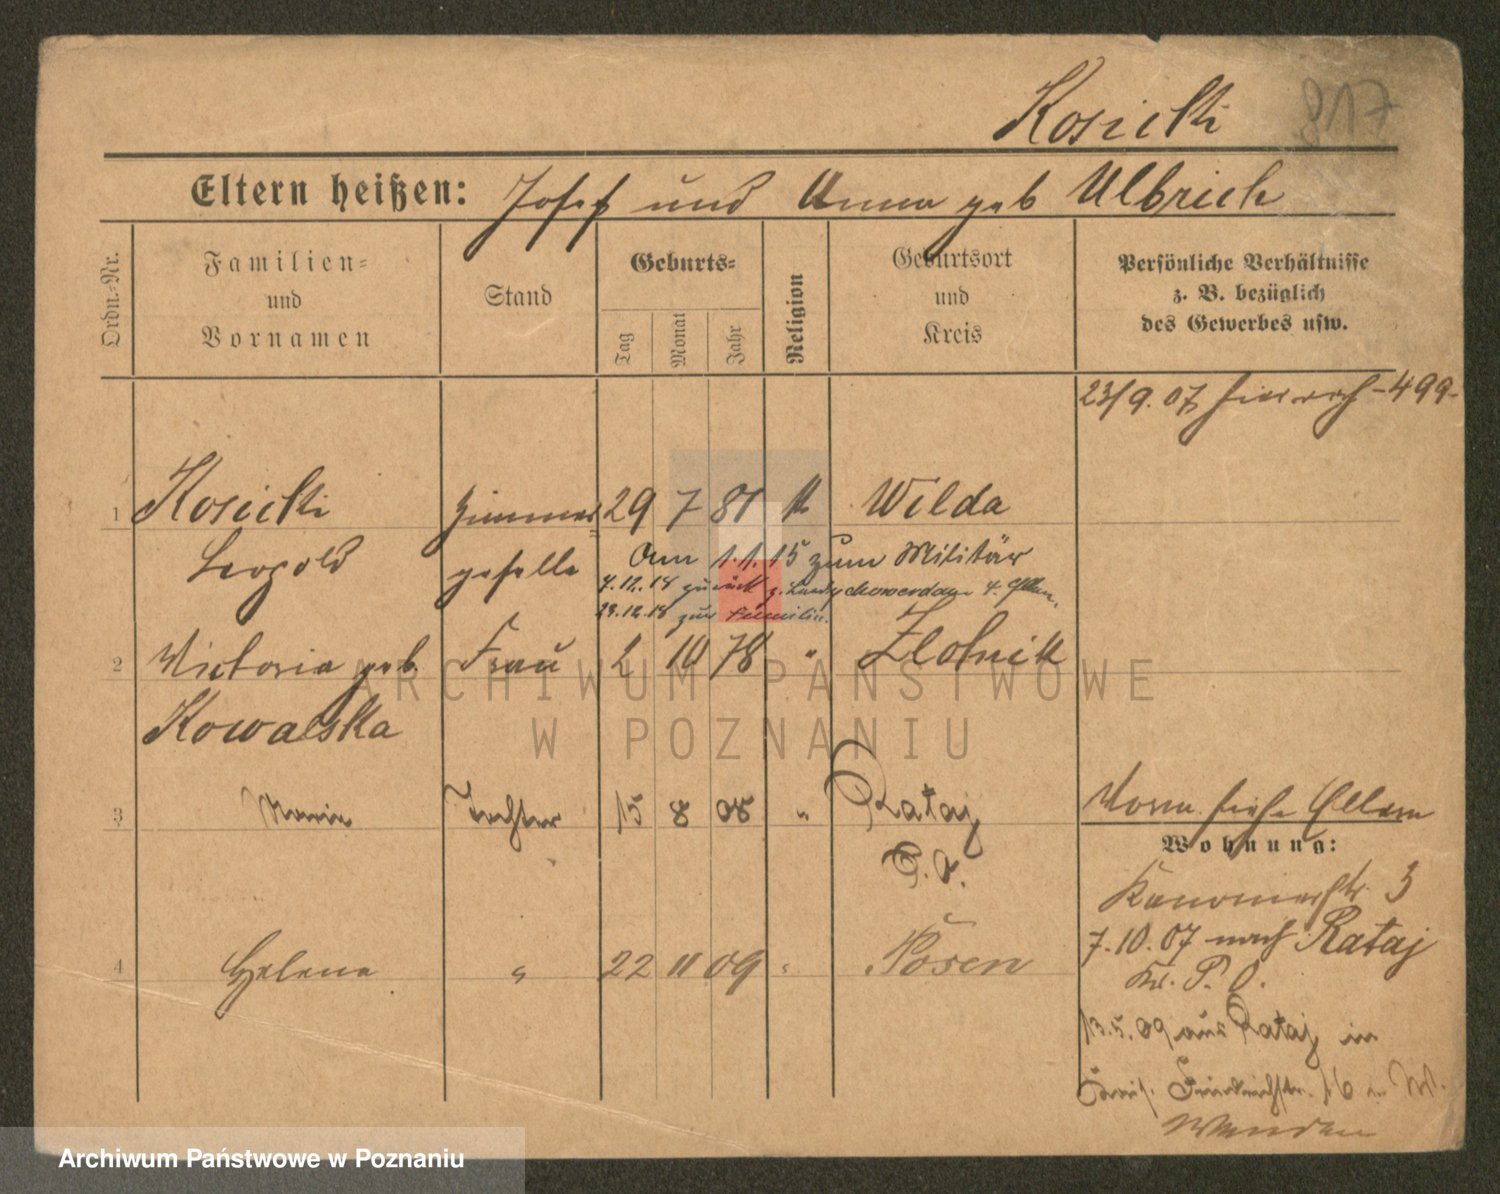 Kosicki 817
Eltern heißen: Josef und Anna geb Ulbrich
Ordn.-Nr.
Familien-
und
Vornamen
Stand
Geburts-
Tag
Monat
Jahr
Religion
Geburtsort
und
Kreis
Persönliche Verhältnisse
z. B. bezüglich
des Gewerbes usw.
23/9. 07 -499-
1 Kosicki Zimmer= 29 7 81 k Wilda
Leopold geselle Am 1.1.15 zum Militär
7.12.18 zurück
23.12.18 zur Familie.
2 Victoria geb. Frau 2 10 78 " Zlotnik
Kowalska
3 Marie Tochter 15 8 08 " Rataj
P. O.
Vorm. siehe Eltern
Wohnung:
Kanonierstr. 3
7.10.07 nach Rataj
Kr. P. O.
4 Helene " 22 11 09 " Posen
13.5.09 aus Rataj in
Friedrichstr. 16
Wenden
ARCHIWUM PAŃSTWOWE
W POZNANIU
Archiwum Państwowe w Poznaniu